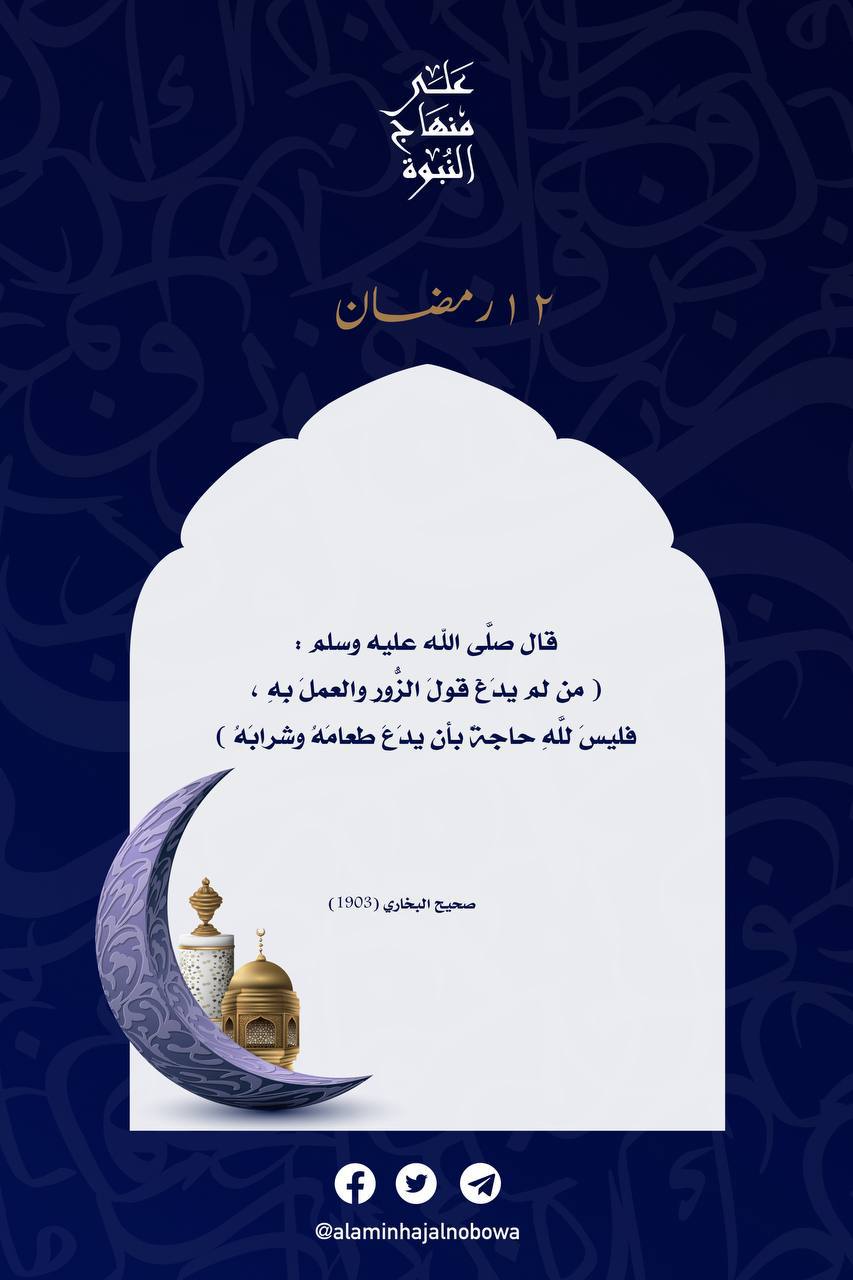 عَلَى
مِنهَاج
النُّبوة
١٢ رمضان
قال صلَّى الله عليه وسلم :
( من لم يدَعْ قولَ الزُّورِ والعملَ بهِ ،
فليسَ للَّهِ حاجةٌ بأن يدَعَ طعامَهُ وشرابَهُ )
صحيح البخاري (1903)
@alaminhajalnobowa